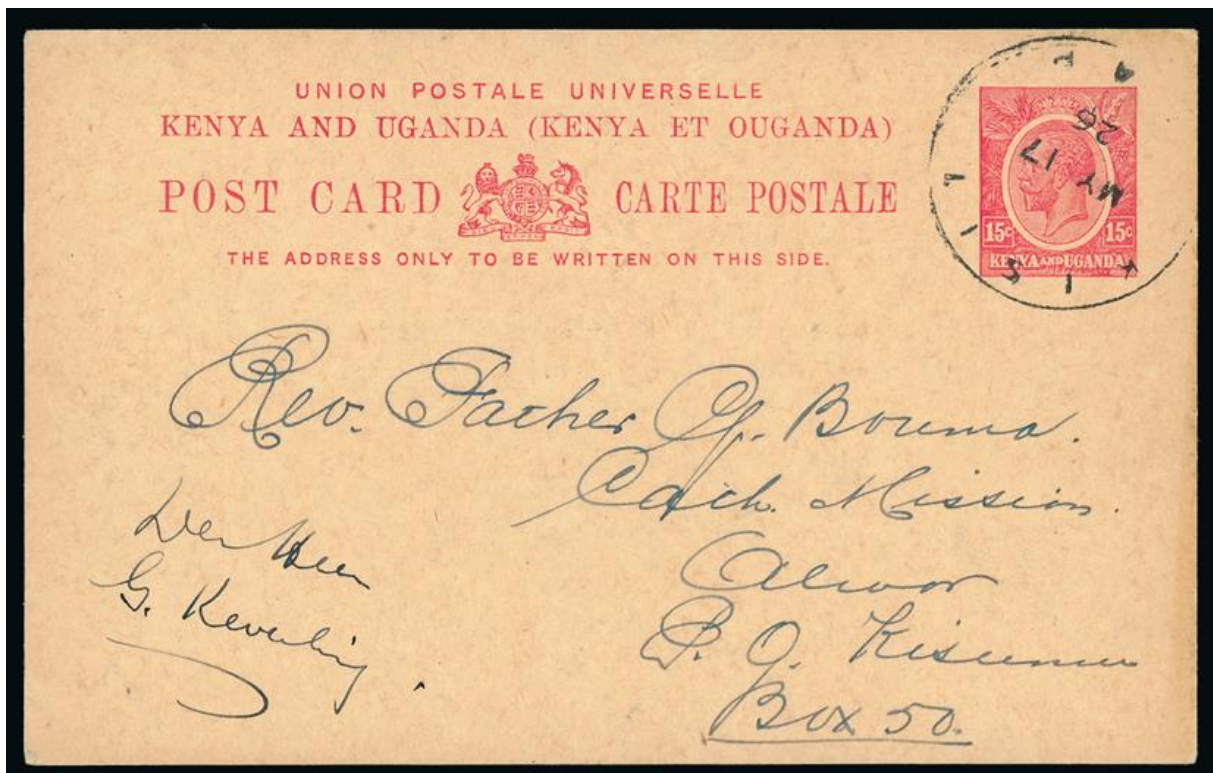 UNION POSTALE UNIVERSELLE
KENYA AND UGANDA (KENYA ET OUGANDA)
POST CARD CARTE POSTALE
THE ADDRESS ONLY TO BE WRITTEN ON THIS SIDE.
15c 15c
KENYA AND UGANDA
KISII
MY 17
26
Rev. Father G. Bouma.
Cath. Mission.
Alwor
P.O. Kisumu
Box 50.
G. Keverling